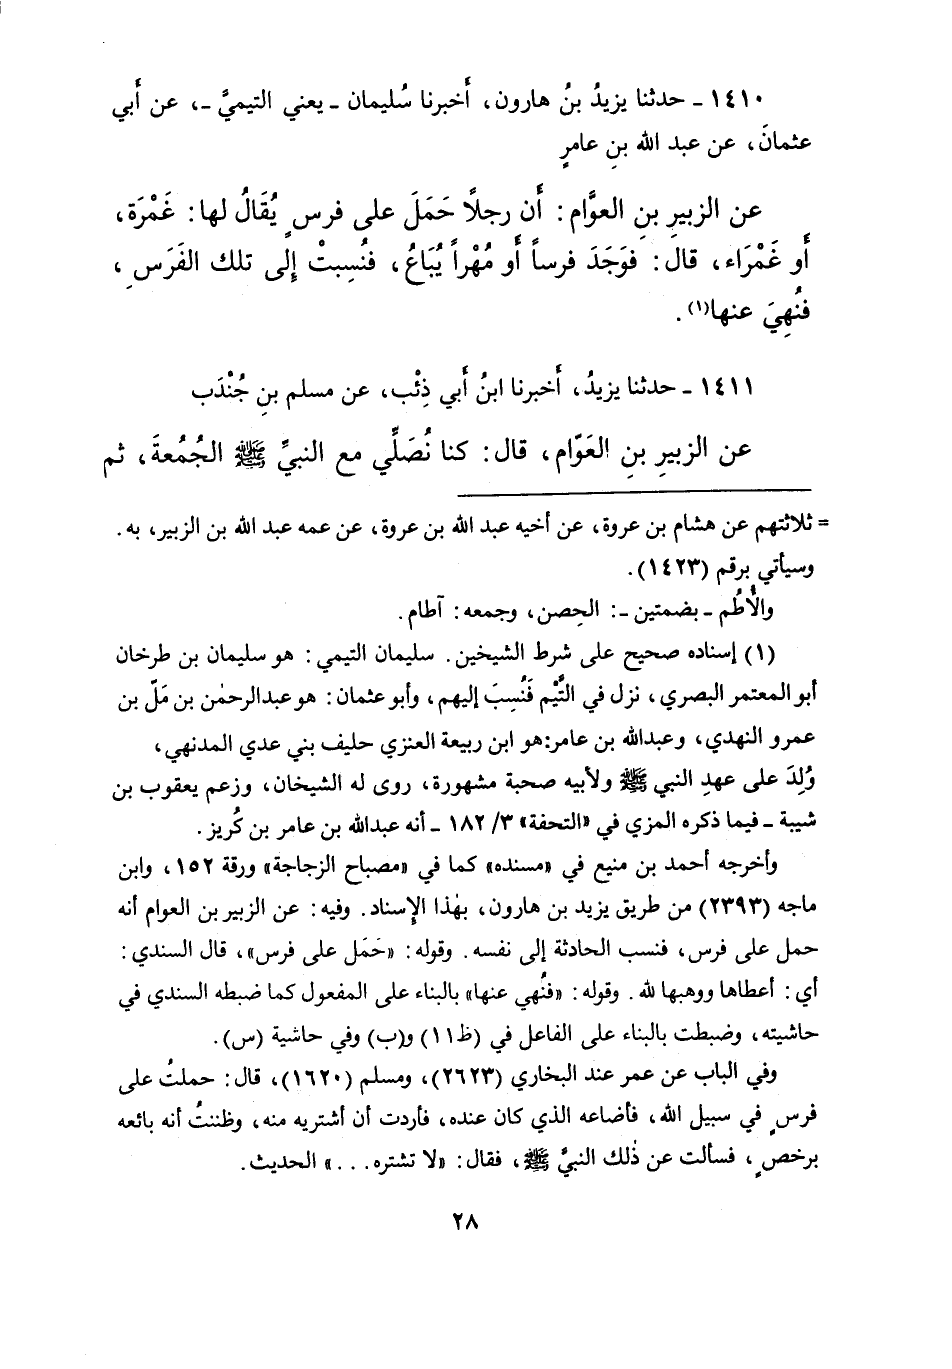 ١٤١٠ ـ حدثنا يزيدُ بنُ هارون، أَخبرنا سُليمان ـ يعني التيميَّ ـ، عن أَبي
عثمانَ، عن عبد الله بنِ عامرٍ
عن الزبيرِ بنِ العوَّام: أَن رجلًا حَمَلَ على فرسٍ يُقَالُ لها: غَمْرَة،
أَو غَمْرَاء، قال: فوَجَدَ فرساً أَو مُهْراً يُبَاعُ، فنُسِبتْ إِلى تلك الفَرَسِ،
فنُهِيَ عنها(١).
١٤١١ ـ حدثنا يزيدُ، أَخبرنا ابنُ أَبي ذِئْب، عن مسلم بنِ جُنْدَب
عن الزبيرِ بنِ العَوّام، قال: كنا نُصَلِّي مع النبيِّ ﷺ الجُمُعةَ، ثم
= ثلاثتهم عن هشام بن عروة، عن أخيه عبد الله بن عروة، عن عمه عبد الله بن الزبير، به.
وسيأتي برقم (١٤٢٣).
والأُطُم ـ بضمتين ـ: الحِصن، وجمعه: آطام.
(١) إسناده صحيح على شرط الشيخين. سليمان التيمي: هو سليمان بن طرخان
أبو المعتمر البصري، نزل في التَّيْم فَنُسِبَ إليهم، وأبو عثمان: هو عبدالرحمٰن بن مَلّ بن
عمرو النهدي، وعبدالله بن عامر:هو ابن ربيعة العنزي حليف بني عدي المدنهي،
وُلِدَ على عهدِ النبي ﷺ ولأبيه صحبة مشهورة، روى له الشيخان، وزعم يعقوب بن
شيبة ـ فيما ذكره المزي في «التحفة» ٣/ ١٨٢ ـ أنه عبدالله بن عامر بن كُريز.
وأخرجه أحمد بن منيع في «مسنده» كما في «مصباح الزجاجة» ورقة ١٥٢، وابن
ماجه (٢٣٩٣) من طريق يزيد بن هارون، بهٰذا الإسناد. وفيه: عن الزبير بن العوام أنه
حمل على فرس، فنسب الحادثة إلى نفسه. وقوله: «حَمَل على فرس»، قال السندي:
أي: أعطاها ووهبها لله. وقوله: «فنُهي عنها» بالبناء على المفعول كما ضبطه السندي في
حاشيته، وضبطت بالبناء على الفاعل في (ظ١١) و(ب) وفي حاشية (س).
وفي الباب عن عمر عند البخاري (٢٦٢٣)، ومسلم (١٦٢٠)، قال: حملتُ على
فرسٍ في سبيل الله، فأضاعه الذي كان عنده، فأردت أن أشتريه منه، وظننتُ أنه بائعه
برخصٍ، فسألت عن ذٰلك النبيَّ ﷺ، فقال: «لا تشتره...» الحديث.
٢٨